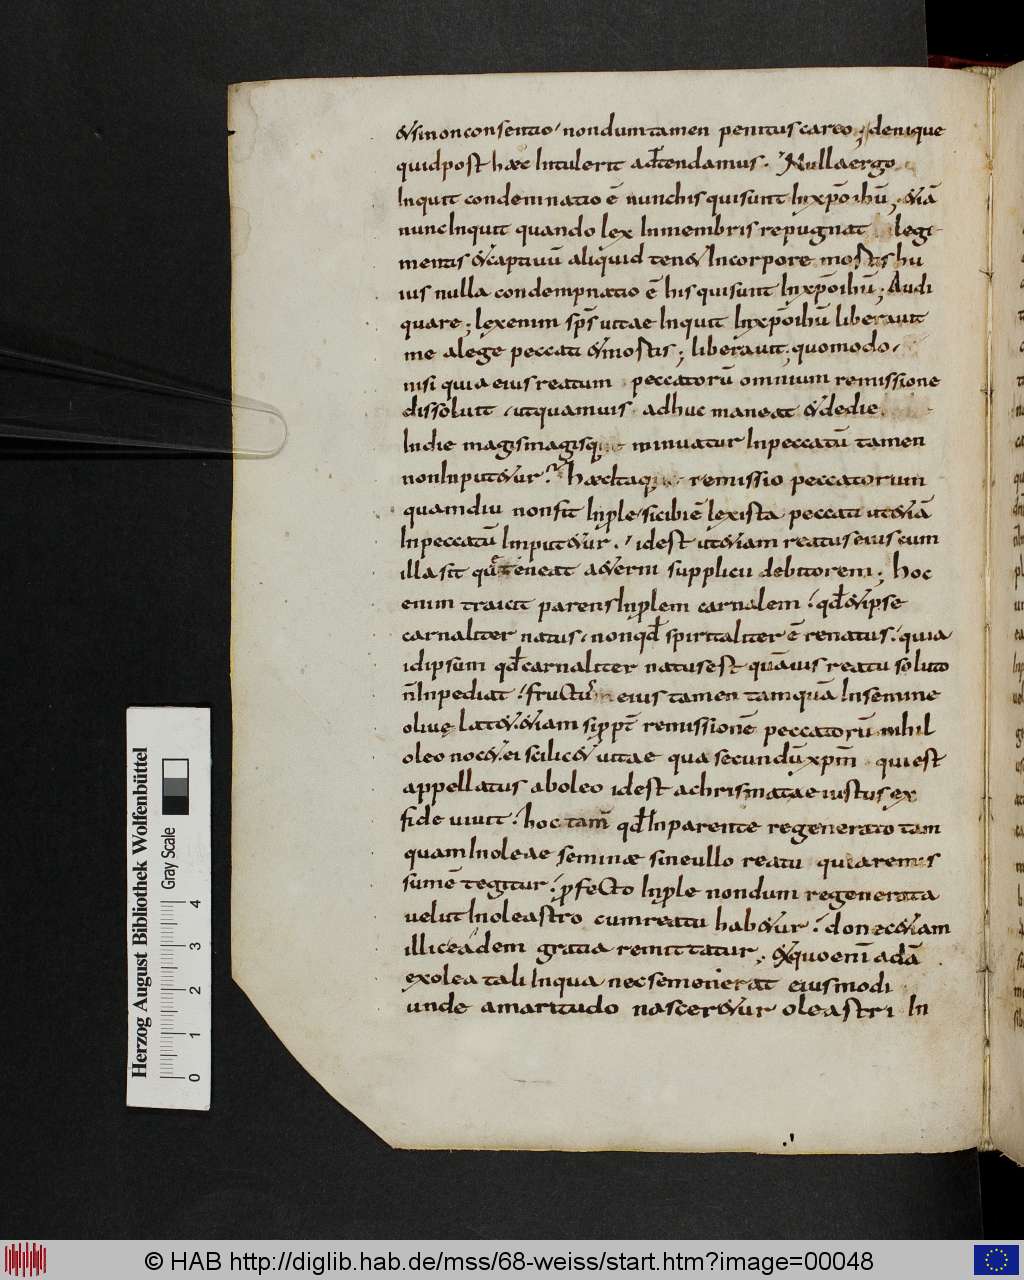 &sinonconsentio nondumtamen penitus careo; denique
quidpost hæc Intulerit adtendamus. Nullaergo
Inquit condemnatio ē nunchis quisunt Inxpōihū; &iā
nuncInquit quando lex Inmembris repugnat legi
mentis &captiuū aliquid ten& Incorpore mortis hu
ius nulla condempnatio ē his quisunt Inxpōihū; Audi
quare; lexenim sps uitae Inquit Inxpōihū liberauit
me alege peccati &mortis; liberauit; quomodo
nisi quia eius reatum peccatorū omnium remissione
dissoluit utquamuis adhuc maneat &dedie
Indie magismagisque minuatur Inpeccatū tamen
nonInput&ur. hæcItaque remissio peccatorum
quamdiu nonfit Inple sicibiē lexista peccati ut&iā
Inpeccatū Input&ur. idest ut&iam reatus eius cum
illa sit qui teneat a&erni supplicii debitorem; hoc
enim traicit parens Inplem carnalem qđ&ipse
carnaliter natus nonqđ spiritaliter ē renatus. quia
idipsum qđcarnaliter natusest quāuis reatu soluto
ñInpediat fructū eius tamen tamquā Insemine
oliuę lat&. &iam sippt remissionē peccatorū nihil
oleo noc&. ei scilic& uitae qua secundū xpm quiest
appellatus aboleo idest achrismatae iustus ex
fide uiuit hoc tam̄ qđInparente regenerato tam
quamInoleae seminæ sineullo reatu quiaremis
sumē tegitur. pfecto Inple nondum regenerata
uelutInoleastro cumreatu hab&ur donec&iam
illiceadem gratia remittatur. Exquoenī adā
exolea tali Inqua necsemenerat eiusmodi
unde amaritudo nascer&ur oleastri In
Herzog August Bibliothek Wolfenbüttel
Gray Scale
0 1 2 3 4
© HAB http://diglib.hab.de/mss/68-weiss/start.htm?image=00048